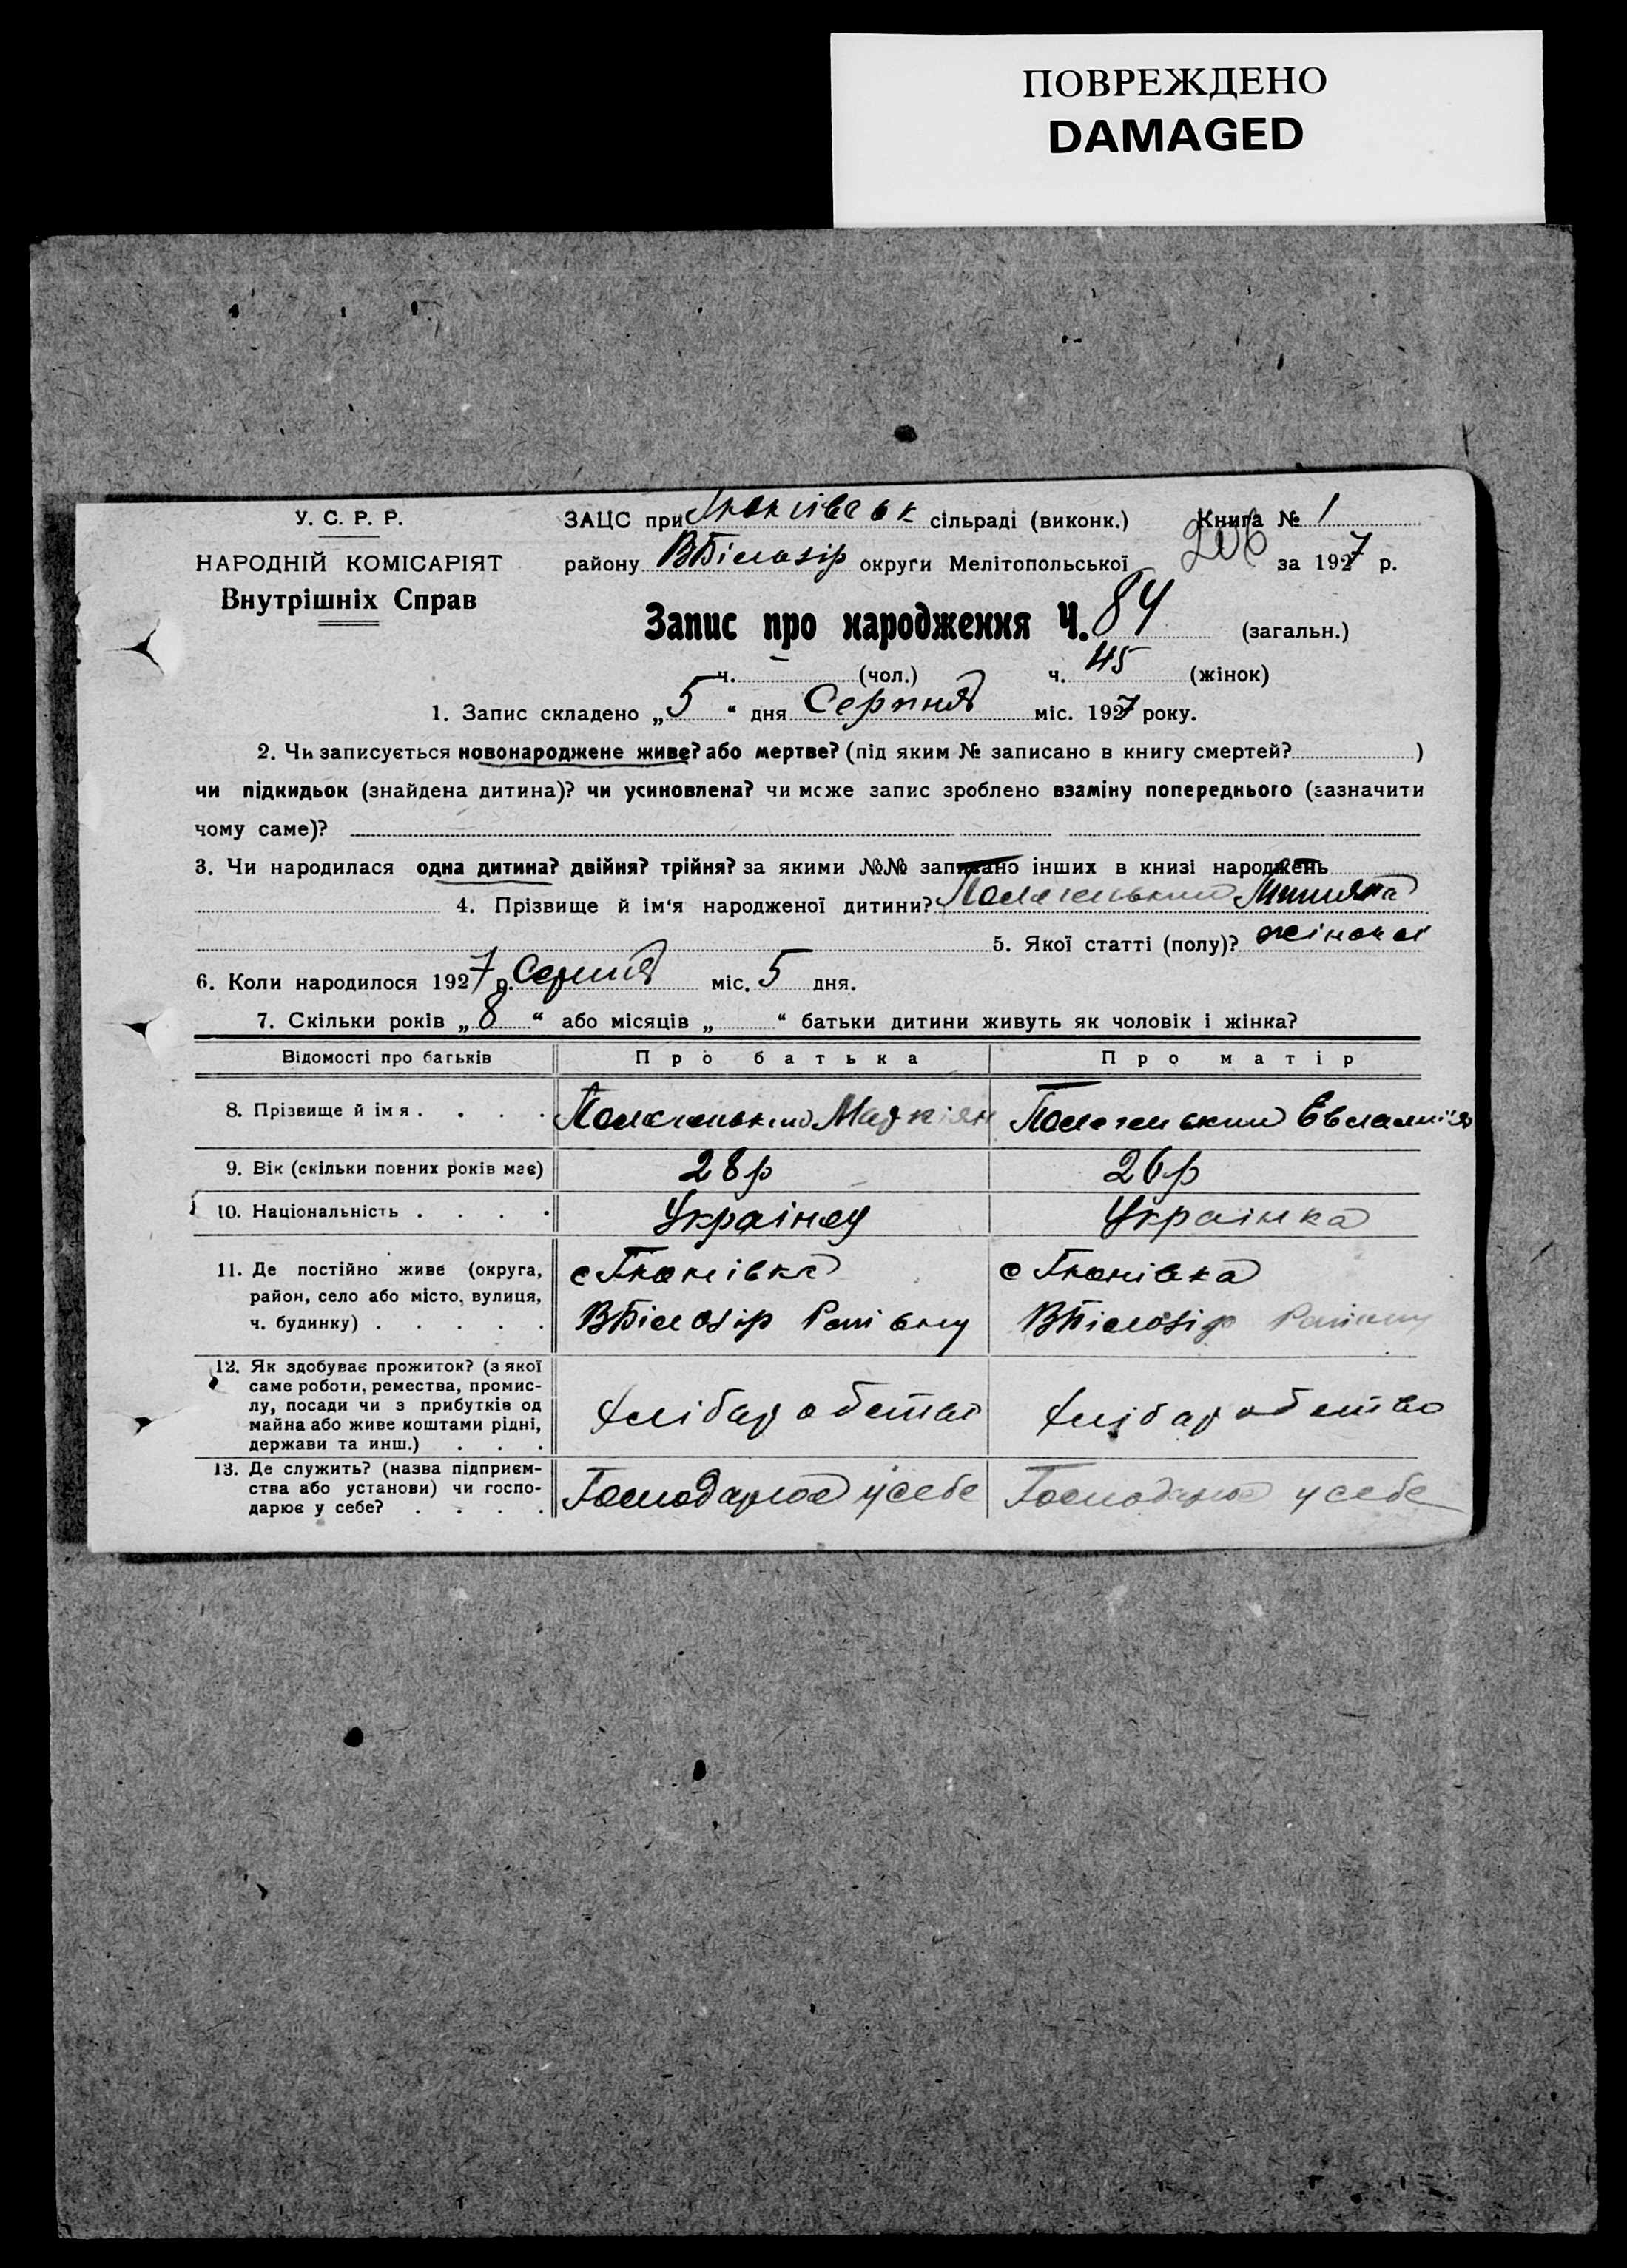 ПОВРЕЖДЕНО
DAMAGED
У. С. Р. Р.
НАРОДНІЙ КОМІСАРІЯТ
Внутрішніх Справ
ЗАЦС при сільраді (виконк.) Книга № 1
району ВБілозір округи Мелітопольської 206 за 1927 р.
Запис про народження Ч. 84 (загальн.)
ч. – (чол.) ч. 45 (жінок)
1. Запис складено „5“ дня Серпня міс. 1927 року.
2. Чи записується новонароджене живе? або мертве? (під яким № записано в книгу смертей? )
чи підкидьок (знайдена дитина)? чи усиновлена? чи може запис зроблено взаміну попереднього (зазначити
чому саме)?
3. Чи народилася одна дитина? двійня? трійня? за якими №№ записано інших в книзі народжень
4. Прізвище й ім'я народженої дитини?
5. Якої статті (полу)? жіночоі
6. Коли народилося 1927 р. Серпня міс. 5 дня.
7. Скільки років „8“ або місяців „ “ батьки дитини живуть як чоловік і жінка?
Відомості про батьків Про батька Про матір
8. Прізвище й імя . . . . Маркіян Евлампія
9. Вік (скільки повних років має) 28р 26р
10. Національність . . . . Украінец Украінка
11. Де постійно живе (округа,
район, село або місто, вулиця,
ч. будинку) . . . . .
с с
ВБілозір Раіону ВБілозір Раіону
12. Як здобуває прожиток? (з якої
саме роботи, ремества, промис-
лу, посади чи з прибутків од
майна або живе коштами рідні,
держави та инш.) . . .
Хлібаробство Хлібаробство
13. Де служить? (назва підприєм-
ства або установи) чи госпо-
дарює у себе? . . . .
Господарюе усебе Господарюе усебе